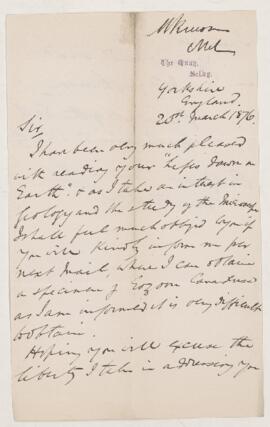 The Quay,
Selby.
Yorkshire
England.
20th March 1876.
Sir
I have been very much pleased
with reading your "Life's Dawn on
Earth" & as I take an interest in
Geology and the study of the Microscope
I shall feel much obliged by if
you will kindly inform me per
next Mail, where I can obtain
a specimen of Eozoon Canadense
as I am informed it is very difficult
to obtain.
Hoping you will excuse the
liberty I take in addressing you